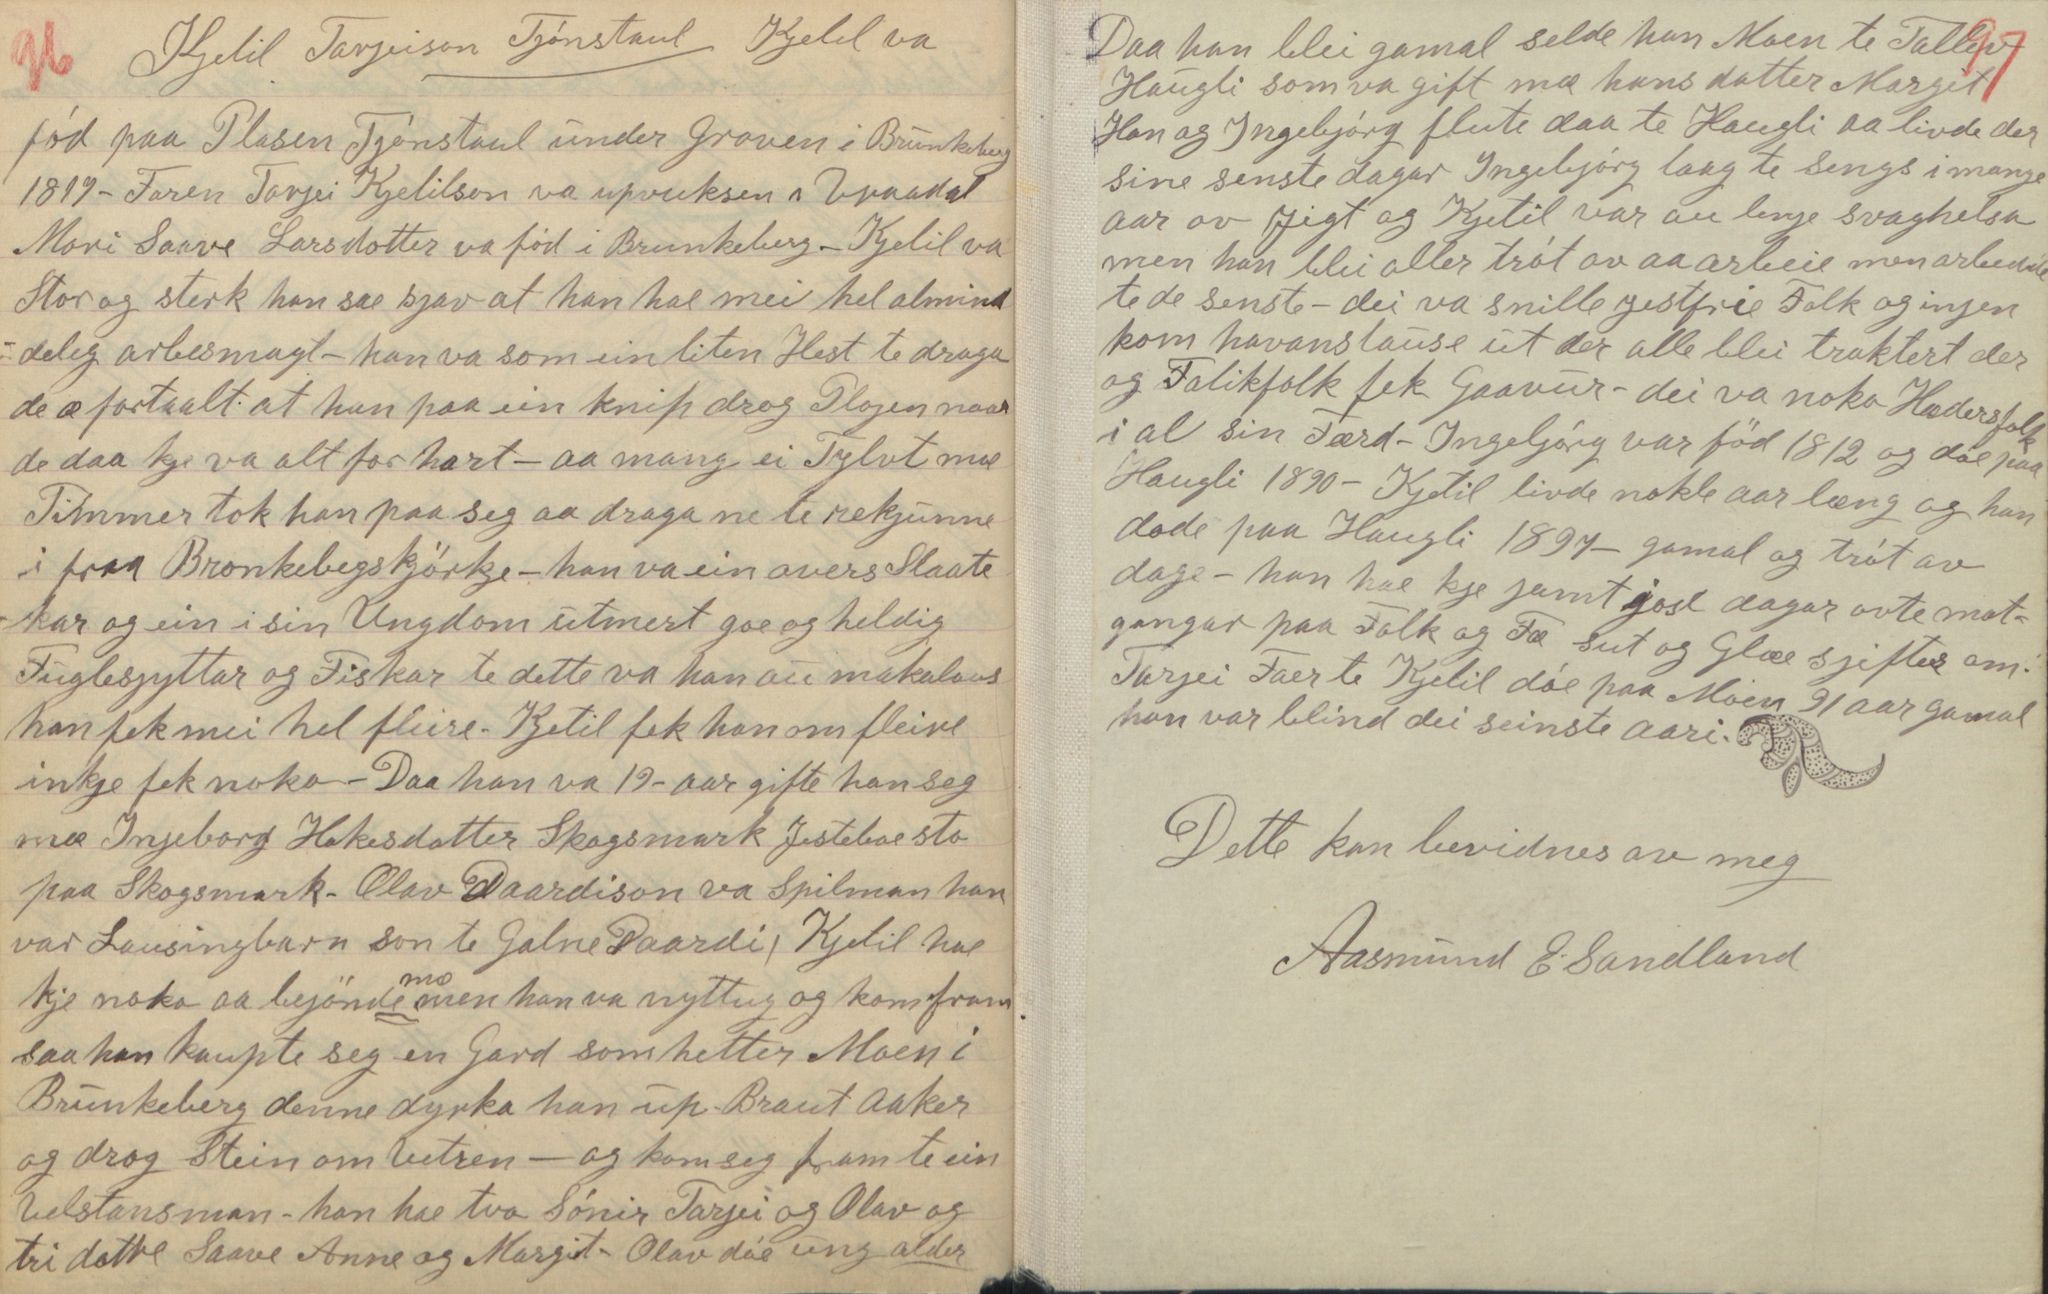 96
Kjetil Tarjeison Tjónstaul Kjetil va
fód paa Plasen Tjónstaul under Groven i Brunkeberg
1817 - Faren Tarjei Kjetilson va upvuksen i Vraadal
Mori Saave Larsdotter va fód i Brunkeberg - Kjetil va
Stor og sterk han sae sjav at han hae mei hel almind
-deleg arbesmagt - han va som ein liten Hest te draga
de æ fortaalt at han paa ein knip drog Plogen naar
de daa kje va alt for hart - aa mang ei Tylvt mæ
Timmer tok han paa seg aa draga ne te rekjunne
i fraa Bronkebegskjórkje - han va ein avers Slaate
-kar og ein i sin Ungdom utmert goe og heldig
Fuglesjyttar og Fiskar te dette va han au makalaus
han fek mei hel fleire - Kjetil fek han om fleire
inkje fek noko - Daa han va 19 - aar gifte han seg
mæ Injeborg Hokesdotter Skogsmark Jesteboe sto
paa Skogsmark - Olav Daardison va Spilman han
var Lausingbarn son te Galne Daardi, Kjetil hae
kje noko aa bejönde mæ men han va nyttug og kom fram
saa han kaupte seg en Gard som hetter Moen i
Brunkeberg denne dyrka han up - Braut Aaker
og drog Stein om Vetren - og kom seg fram te ein
Velstansman - han hae tvo Sónir Tarjei og Olav og
tri dotre Saave Anne og Margit - Olav dóe ung alder
97
Daa han blei gamal selde han Moen te Tallev
Haugli som va gift mæ hans datter Margit
Han og Ingebjórg flute daa te Haugli aa livde der
sine senste dagar Ingebjórg laag te sengs i mange
aar av Jigt og Kjetil var au lenje svaghelsa
men han blei aller trót av aa arbeie men arbeidde
te de senste - dei va snille jestfrie Folk og injen
kom havanslause ut der alle blei traktert der
og Fatikfolk fek Gaavur - dei va noko Hædersfolk
i al sin Færd - Ingebjórg var föd 1812 og dóe paa
Haugli 1890 - Kjetil livde nokle aar læng og han
dode paa Haugli 1897 - gamal og trót av
dage - han hae kje jamt gose dagar ovte mot-
gangar paa Folk og Fæ sut og Glæe sjiftes om.
Tarjei Faer te Kjetil dóe paa Moen 91 aar gamal
han var blind dei seinste aari.
Dette kan bevidnes av meg
Aasmund E. Sandland